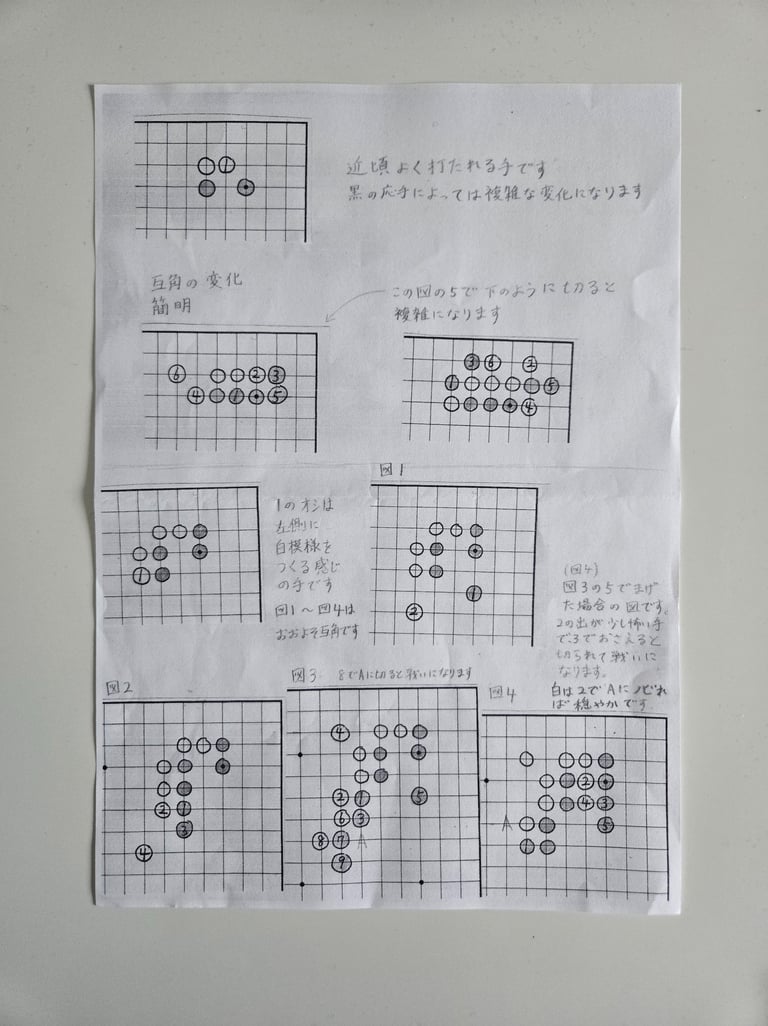 近頃よく打たれる手です
黒の応手によっては複雑な変化になります
互角の変化
簡明
この図の5で下のように切ると
複雑になります
1
6 2 3
4 1 5
3 6 2
1 5
4
1のオシは
左側に
白模様を
つくる感じ
の手です
図1〜図4は
おおよそ互角です
1
図1
1
2
(図4)
図3の5でまげ
た場合の図です。
2の出が少し怖い手
で3でおさえると
切られて戦いに
なります。
白は2でAにノビれ
ば穏やかです
図2
2 1
3
4
図3 8でAに切ると戦いになります
4
2 1 5
6 3
8 7 A
9
図4
2
4 3
A 5
1